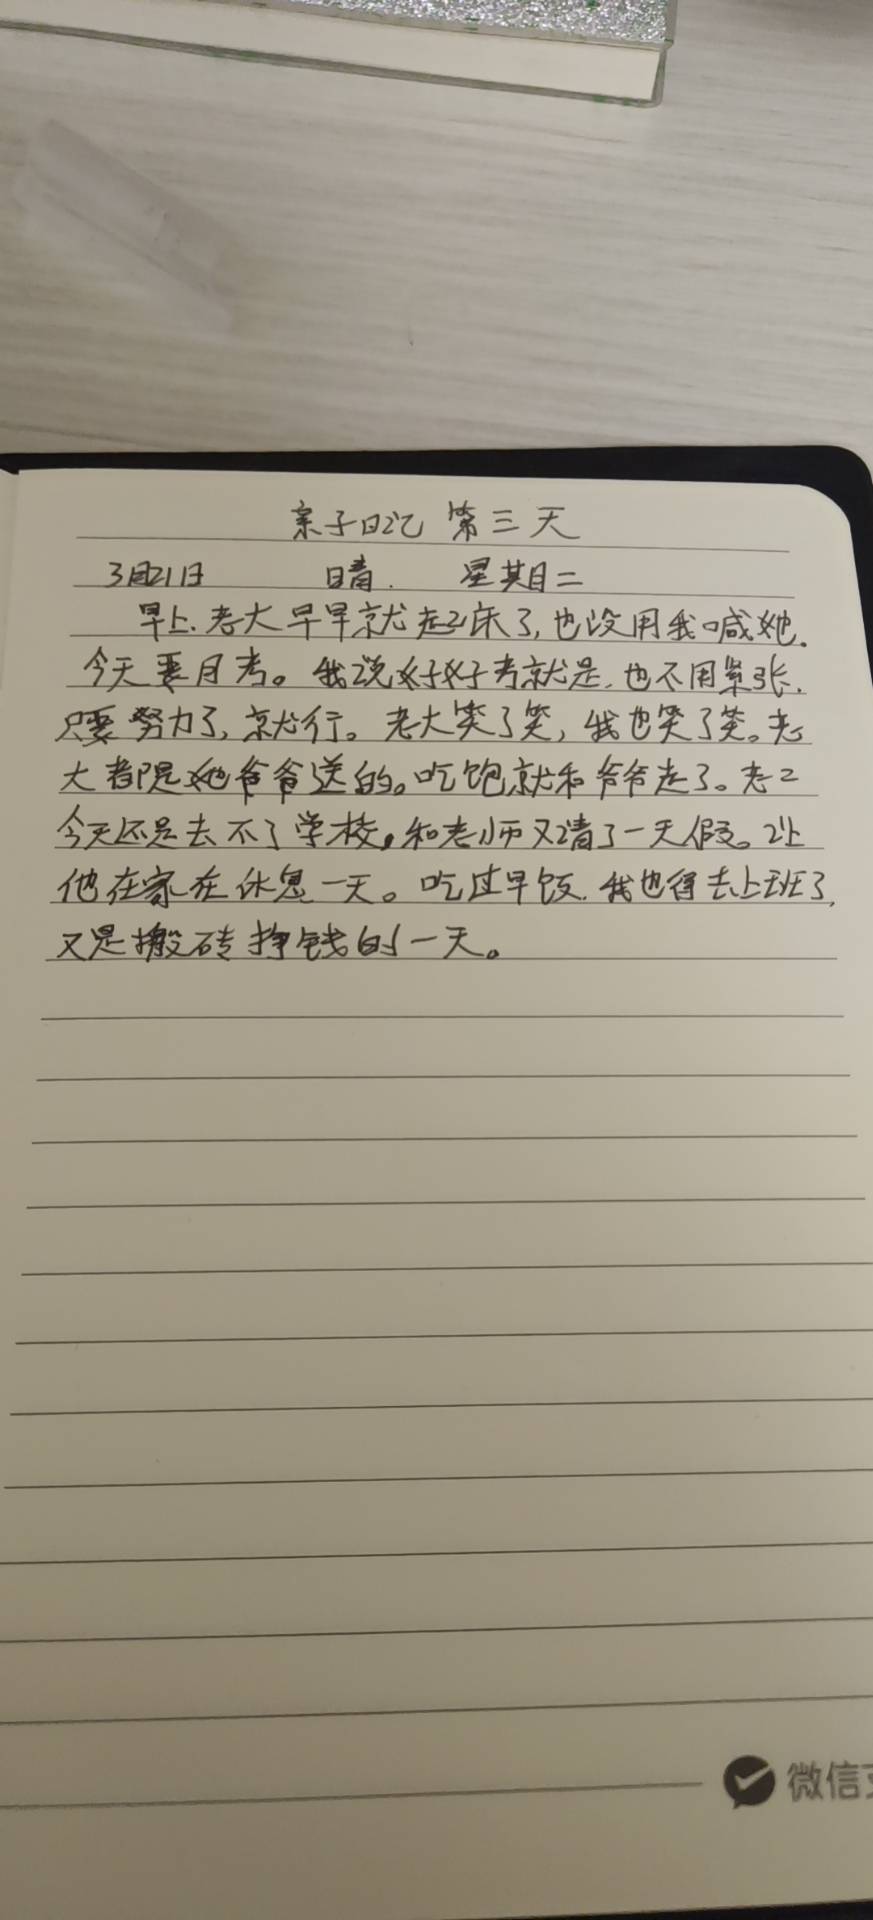 亲子日记 第三天
3月21日 晴. 星期二
早上.老大早早就起床了,也没用我喊她.
今天要月考。我说好好考就是,也不用紧张,
只要努力了,就行。老大笑了笑,我也笑了笑。老
大都是她爷爷送的。吃饱就和爷爷走了。老二
今天还是去不了学校,和老师又请了一天假。让
他在家在休息一天。吃过早饭.我也得去上班了,
又是搬砖挣钱的一天。
微信支